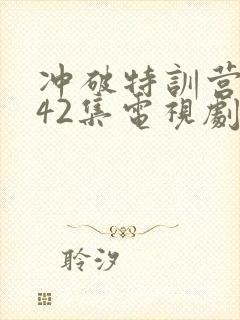 冲破特訓营
42集電視劇
聆汐